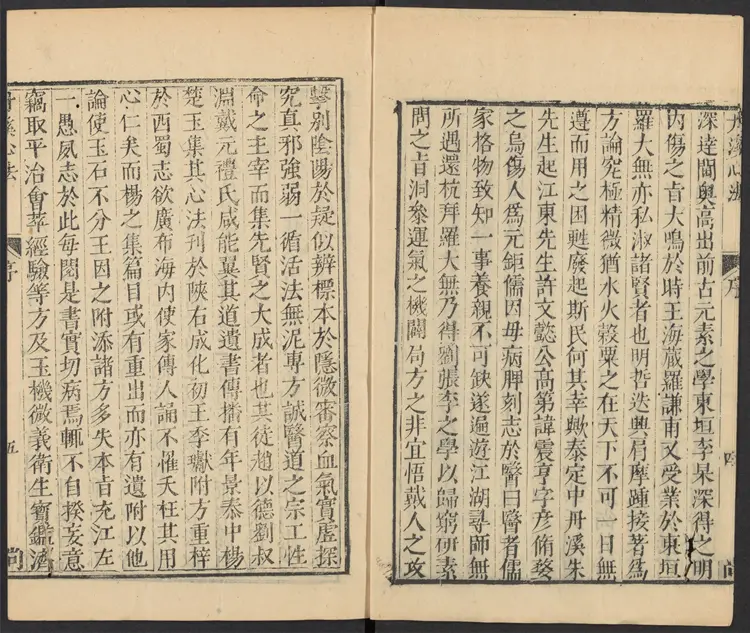 丹溪心法 序 四 尚
深達閫奧高出前古元素之學東垣李杲深得之明
內傷之旨大鳴於時王海藏羅謙甫又受業於東垣
羅大無亦私淑諸賢者也明哲迭興肩摩踵接著爲
方論究極精微猶水火穀粟之在天下不可一日無
遵而用之困甦廢起斯民何其幸歟泰定中丹溪朱
先生起江東先生許文懿公高第諱震亨字彥脩婺
之烏傷人爲元鉅儒因母病脾刻志於醫曰醫者儒
家格物致知一事養親不可缺遂遍遊江湖尋師無
所遇還杭拜羅大無乃得劉張李之學以歸窮研素
問之旨洞參運氣之機闢局方之非宜悟戴人之攻
擊別陰陽於疑似辨標本於隱微審察血氣實虛探
究真邪強弱一循活法無泥專方誠醫道之宗工性
命之主宰而集先賢之大成者也其徒趙以德劉叔
淵戴元禮氏咸能翼其道遺書傳播有年景泰中楊
楚玉集其心法刊於陝右成化初王季瓛附方重梓
於西蜀志欲廣布海內使家傳人誦不罹夭枉其用
心仁矣而楊之集篇目或有重出而亦有遺附以他
論使玉石不分王因之附添諸方多失本旨充江左
一愚夙志於此每閱是書實切病焉輒不自揆妄意
竊取平治會萃經驗等方及玉機微義衛生寶鑑濟
丹溪心法 序 五 尚